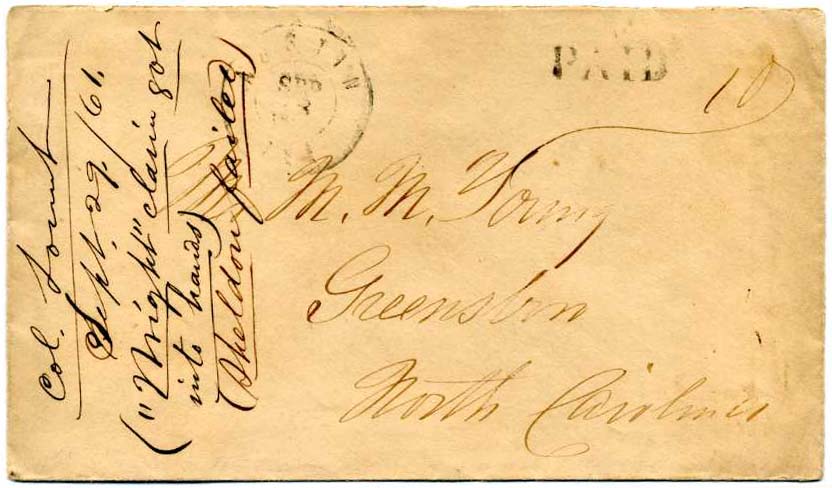 Col.
Sept. 29./61.
("Wright" claim got
into hands)
(Sheldon failed)
SEP
PAID
10
M. M. Young
Greensboro
North Carolina